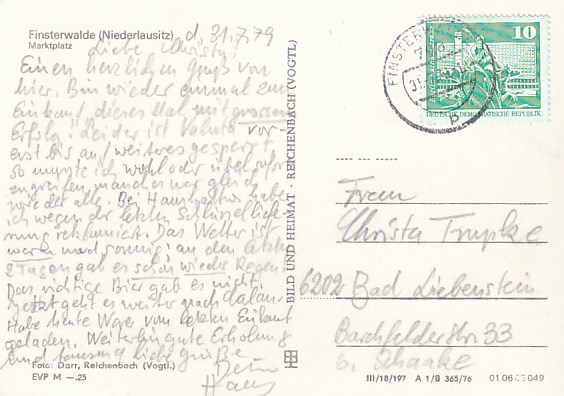 Finsterwalde (Niederlausitz)
Marktplatz
d. 31.7.79
Liebe Christa!
Einen herzlichen Gruß von
hier. Bin wieder einmal zum
Einkauf, dieses Mal mit grossem
Erfolg. Leider ist vor-
erst bis auf weiteres gesperrt
so musste ich wohl oder übel sofort
zugreifen, manches war gleich
wieder alle. Bei habe
ich wegen der letzten Schlüssel
reklamiert. Das Wetter ist
warm und sonnig, an den letzten
2 Tagen gab es schon wieder Regen.
Das richtige Bier gab es nicht.
Jetzt geht es weiter nach
Habe heute Ware vom letzten Einkauf
geladen. Weiterhin gute Erholung
und tausend liebe Grüße
Dein
Hans
Foto: Darr, Reichenbach (Vogtl.)
EVP M —.25
BILD UND HEIMAT · REICHENBACH (VOGTL)
FINSTERWALDE
10
DEUTSCHE DEMOKRATISCHE REPUBLIK
Frau
Christa Trupke
6202 Bad Liebenstein
Barchfelder Str. 33
b. Schaake
III/18/197 A 1/B 365/76
01 06 03 049